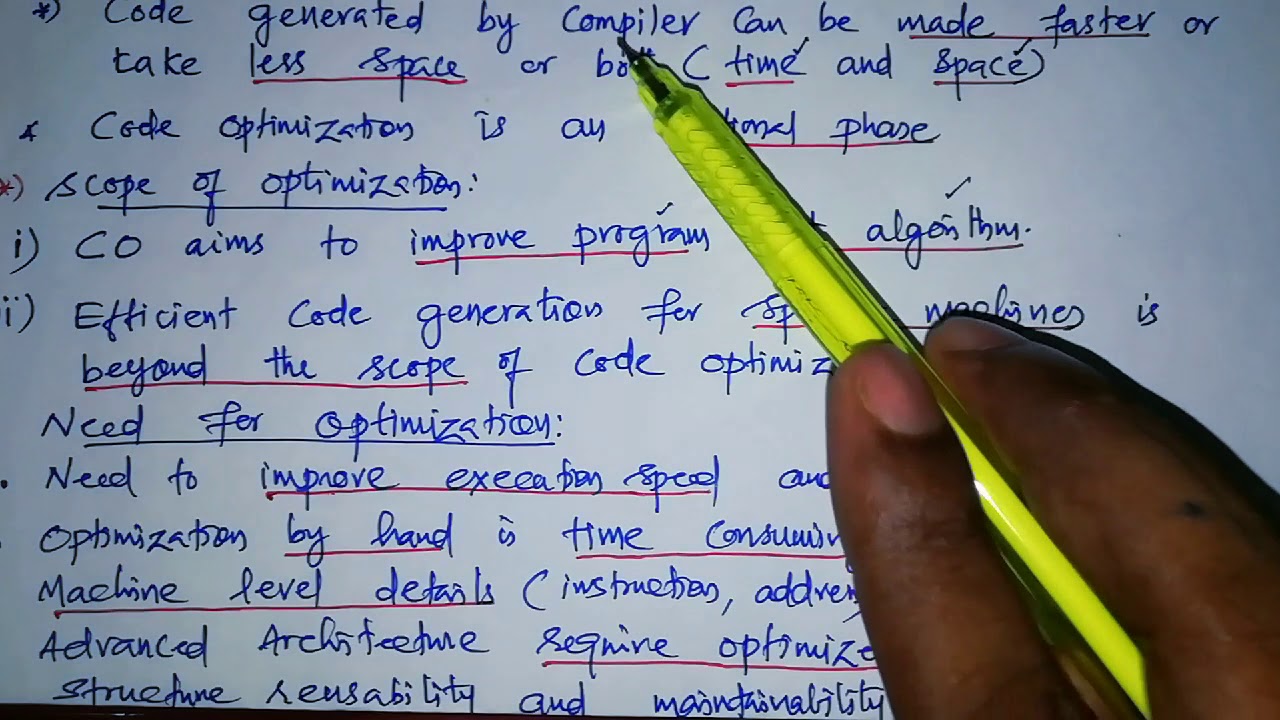 *) Code generated by Compiler Can be made faster or
take less space or bo (time and space)
* Code optimization is an tional phase
*) Scope of optimization:
i) CO aims to improve program algorithm.
ii) Efficient Code generation for sp machines is
beyond the scope of Code optimiz
Need for optimization:
. Need to improve execation speed and
. Optimization by hand is time Consumin
Machine level details (instruction, addres
Advanced Architecture require optimize
structure reusability and maintainability